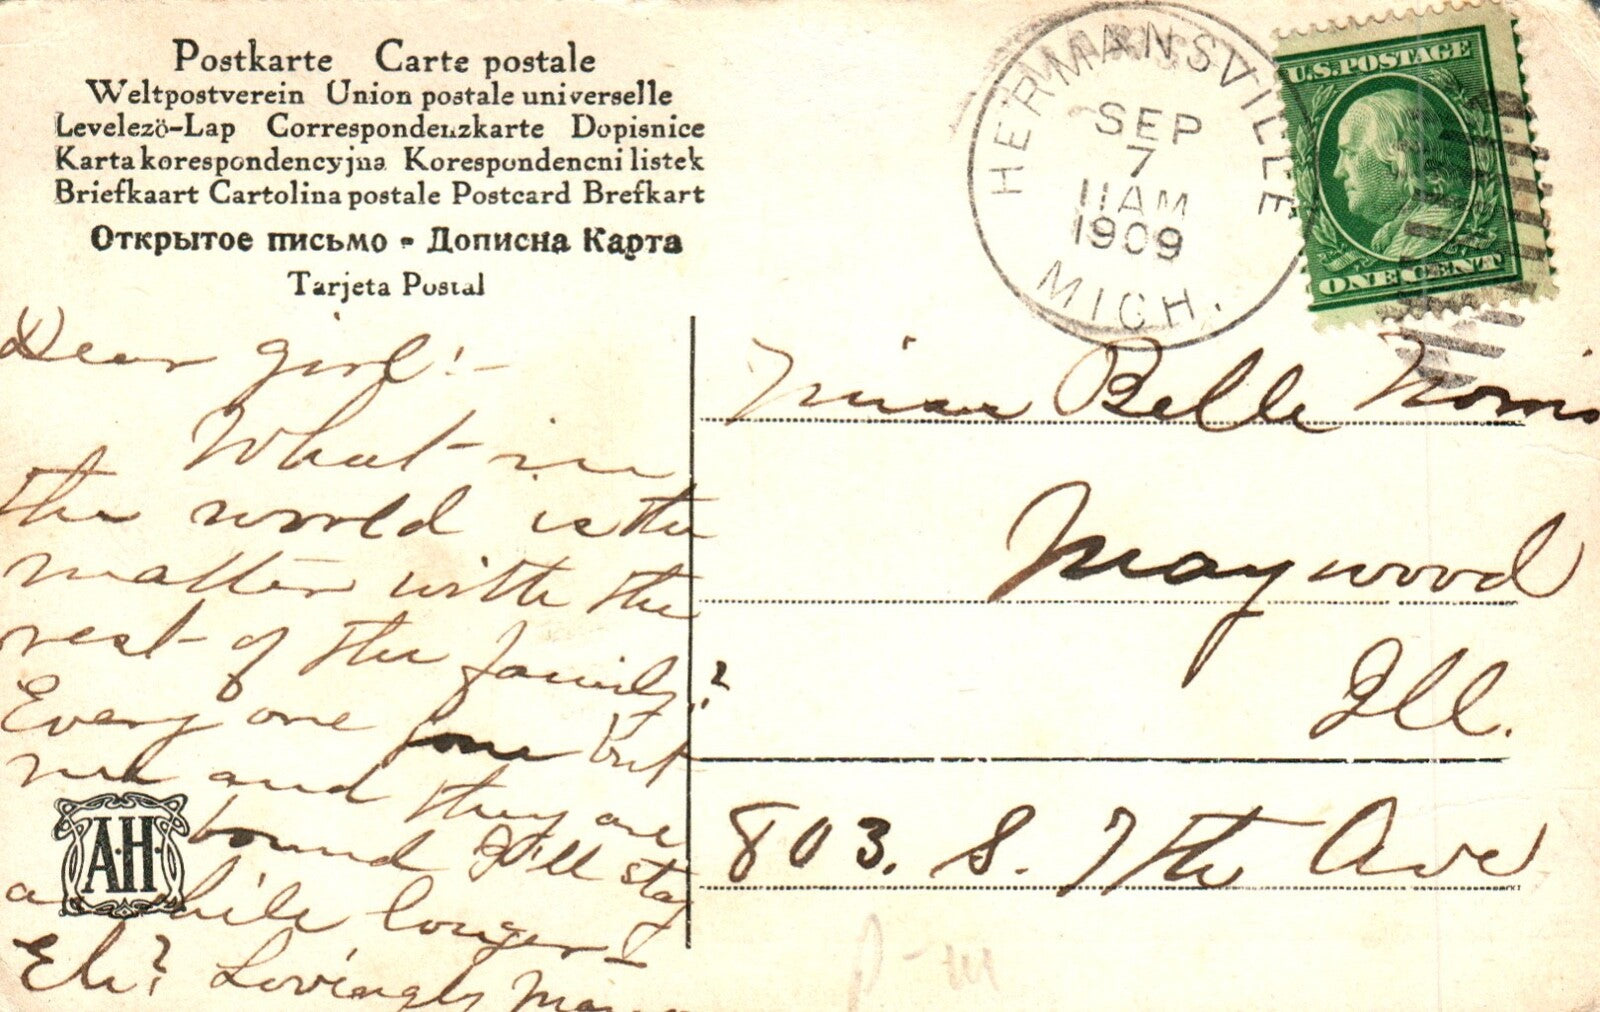 Postkarte Carte postale
Weltpostverein Union postale universelle
Levelezö-Lap Correspondenzkarte Dopisnice
Karta korespondencyjna Korespondencni listek
Briefkaart Cartolina postale Postcard Brefkart
Открытое письмо - Дописна Карта
Tarjeta Postal
HERMANSVILLE
SEP
7
11AM
1909
MICH.
U.S. POSTAGE
ONE CENT
Dear girl!-
What in
the world is the
matter with the
rest of the family?
Every one gone but
me and they are
bound I'll stay
a while longer
Eh? Lovingly
A·H
Miss Belle Norris
Maywood
Ill.
803. S. 7th Ave